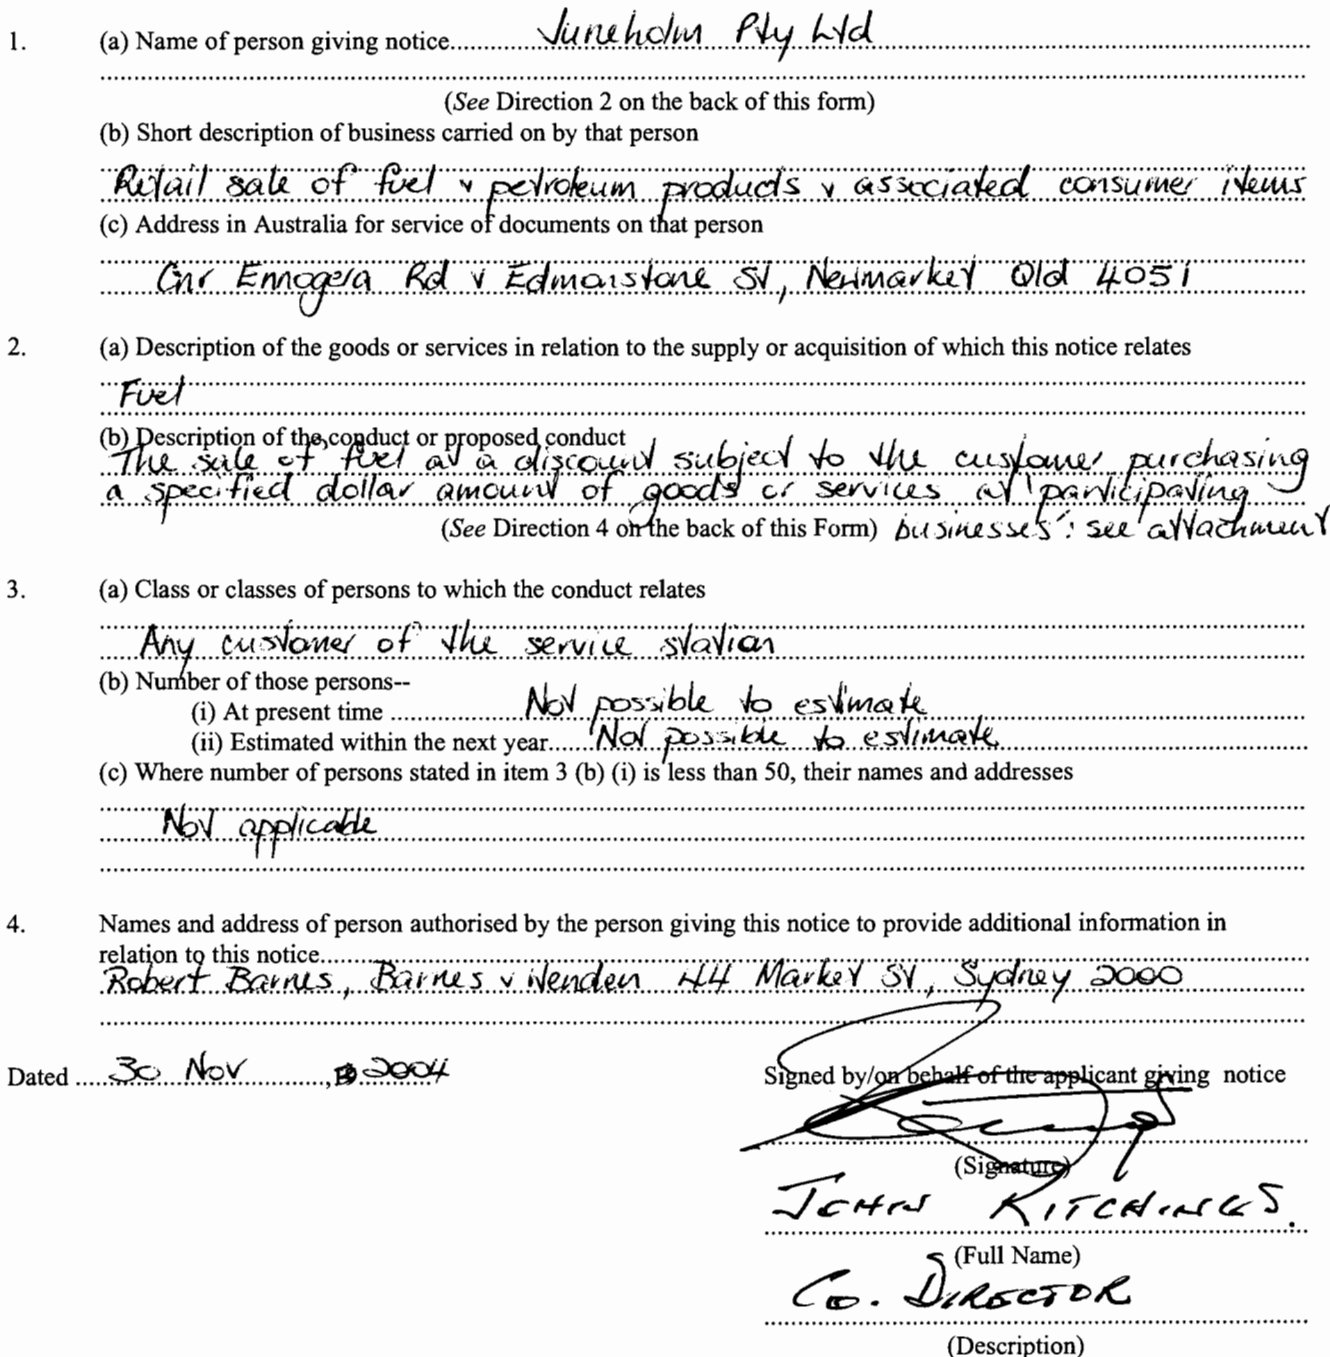 1. (a) Name of person giving notice Juneholm Pty Ltd
(See Direction 2 on the back of this form)
(b) Short description of business carried on by that person
Retail sale of fuel & petroleum products & associated consumer items
(c) Address in Australia for service of documents on that person
Cnr Ennogera Rd & Edmonstone St, Newmarket Qld 4051
2. (a) Description of the goods or services in relation to the supply or acquisition of which this notice relates
Fuel
(b) Description of the conduct or proposed conduct
The sale of fuel at a discount subject to the customer purchasing
a specified dollar amount of goods or services at 'participating
(See Direction 4 on the back of this Form) businesses': see attachment
3. (a) Class or classes of persons to which the conduct relates
Any customer of the service station
(b) Number of those persons--
(i) At present time Not possible to estimate
(ii) Estimated within the next year Not possible to estimate
(c) Where number of persons stated in item 3 (b) (i) is less than 50, their names and addresses
Not applicable
4. Names and address of person authorised by the person giving this notice to provide additional information in
relation to this notice
Robert Barnes, Barnes & Wenden 44 Market St, Sydney 2000
Dated 30 Nov, 2004
Signed by/on behalf of the applicant giving notice
(Signature)
JOHN KITCHINGS.
(Full Name)
Co. DIRECTOR
(Description)